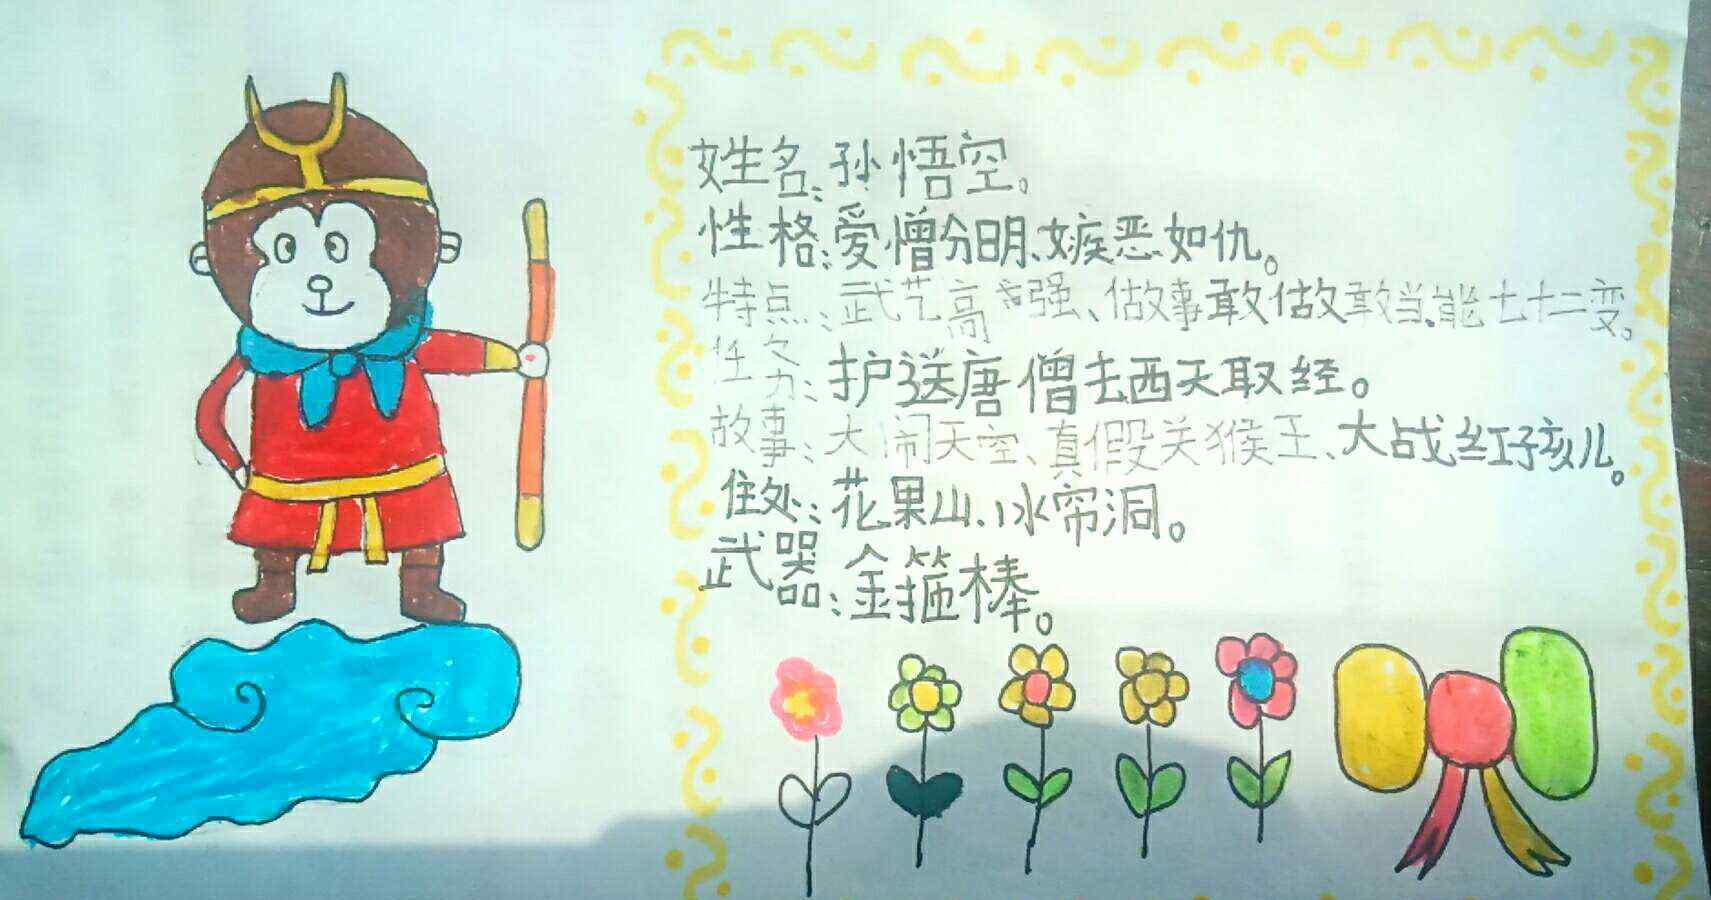 姓名:孙悟空。
性格:爱憎分明、嫉恶如仇。
特点:武艺高强、做故事敢做敢当、能七十二变。
任务:护送唐僧去西天取经。
故事:大闹天空、真假关猴王、大战红孩儿。
住处:花果山、水帘洞。
武器:金箍棒。